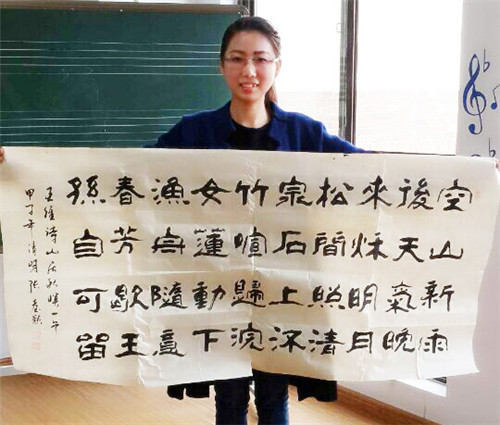 空山新雨
後天氣晚
來秌明月
松間照清
泉石上流
竹喧歸浣
女蓮動下
漁舟隨意
春芳歇王
孫自可留
王維詩山居秋暝一首
甲子年清明張